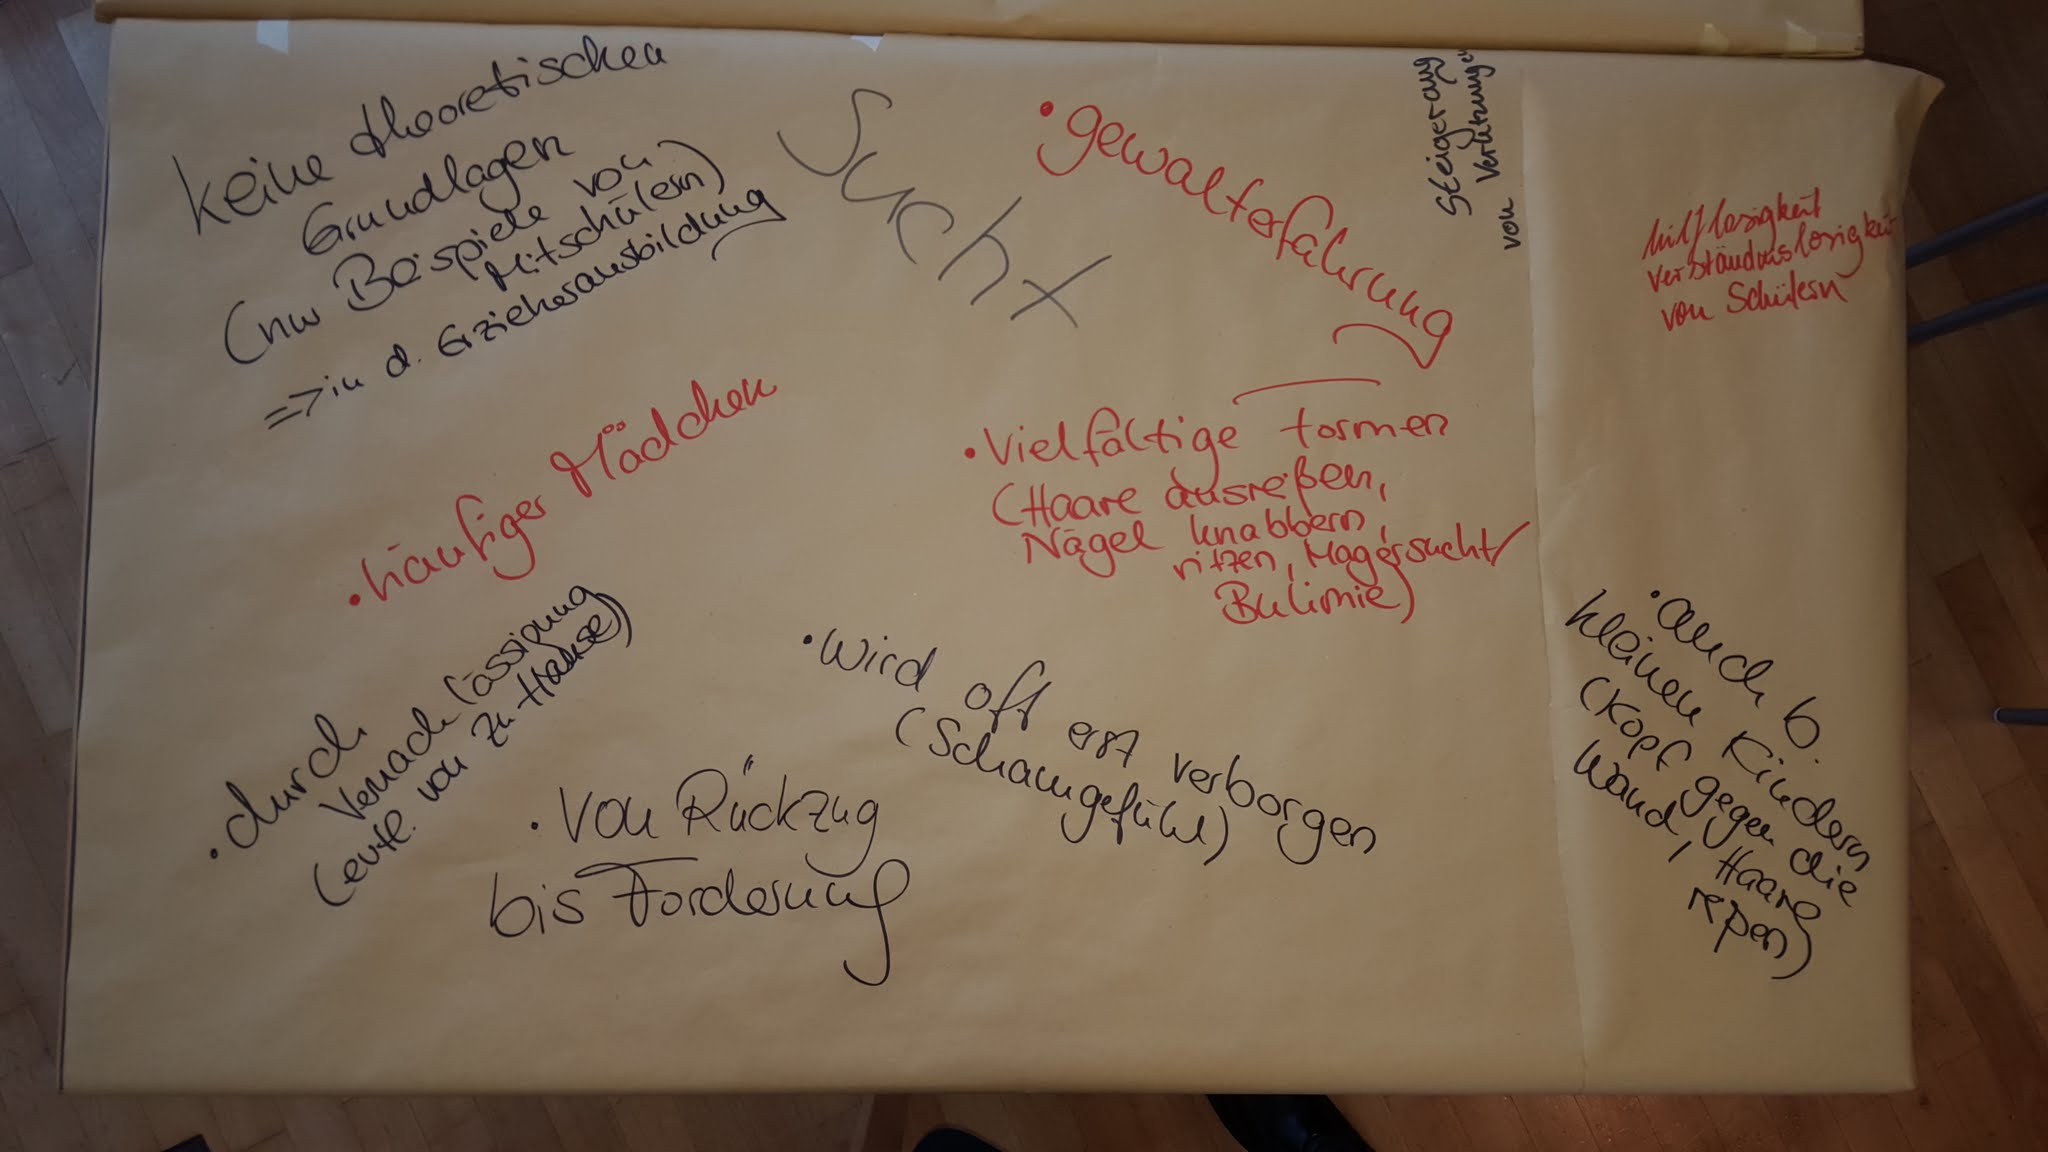 keine theoretischen
Grundlagen
(nur Beispiele von
Mitschülern)
=> in d. Erzieherausbildung
Sucht
• gewalterfahrung
Steigerung
von Verletzungen
hilflosigkeit
verständnislosigkeit
von Schülern
• häufiger Mädchen
• Vielfältige Formen
(Haare ausreißen,
Nägel knabbern,
ritzen, Magersucht/
Bulimie)
• durch
Vernachlässigung
(evtl. von zu Hause)
• Von Rückzug
bis Forderung
• wird oft erst verborgen
(Schamgefühl)
• auch b.
kleinen Kindern
(Kopf gegen die
Wand, Haare
reißen)